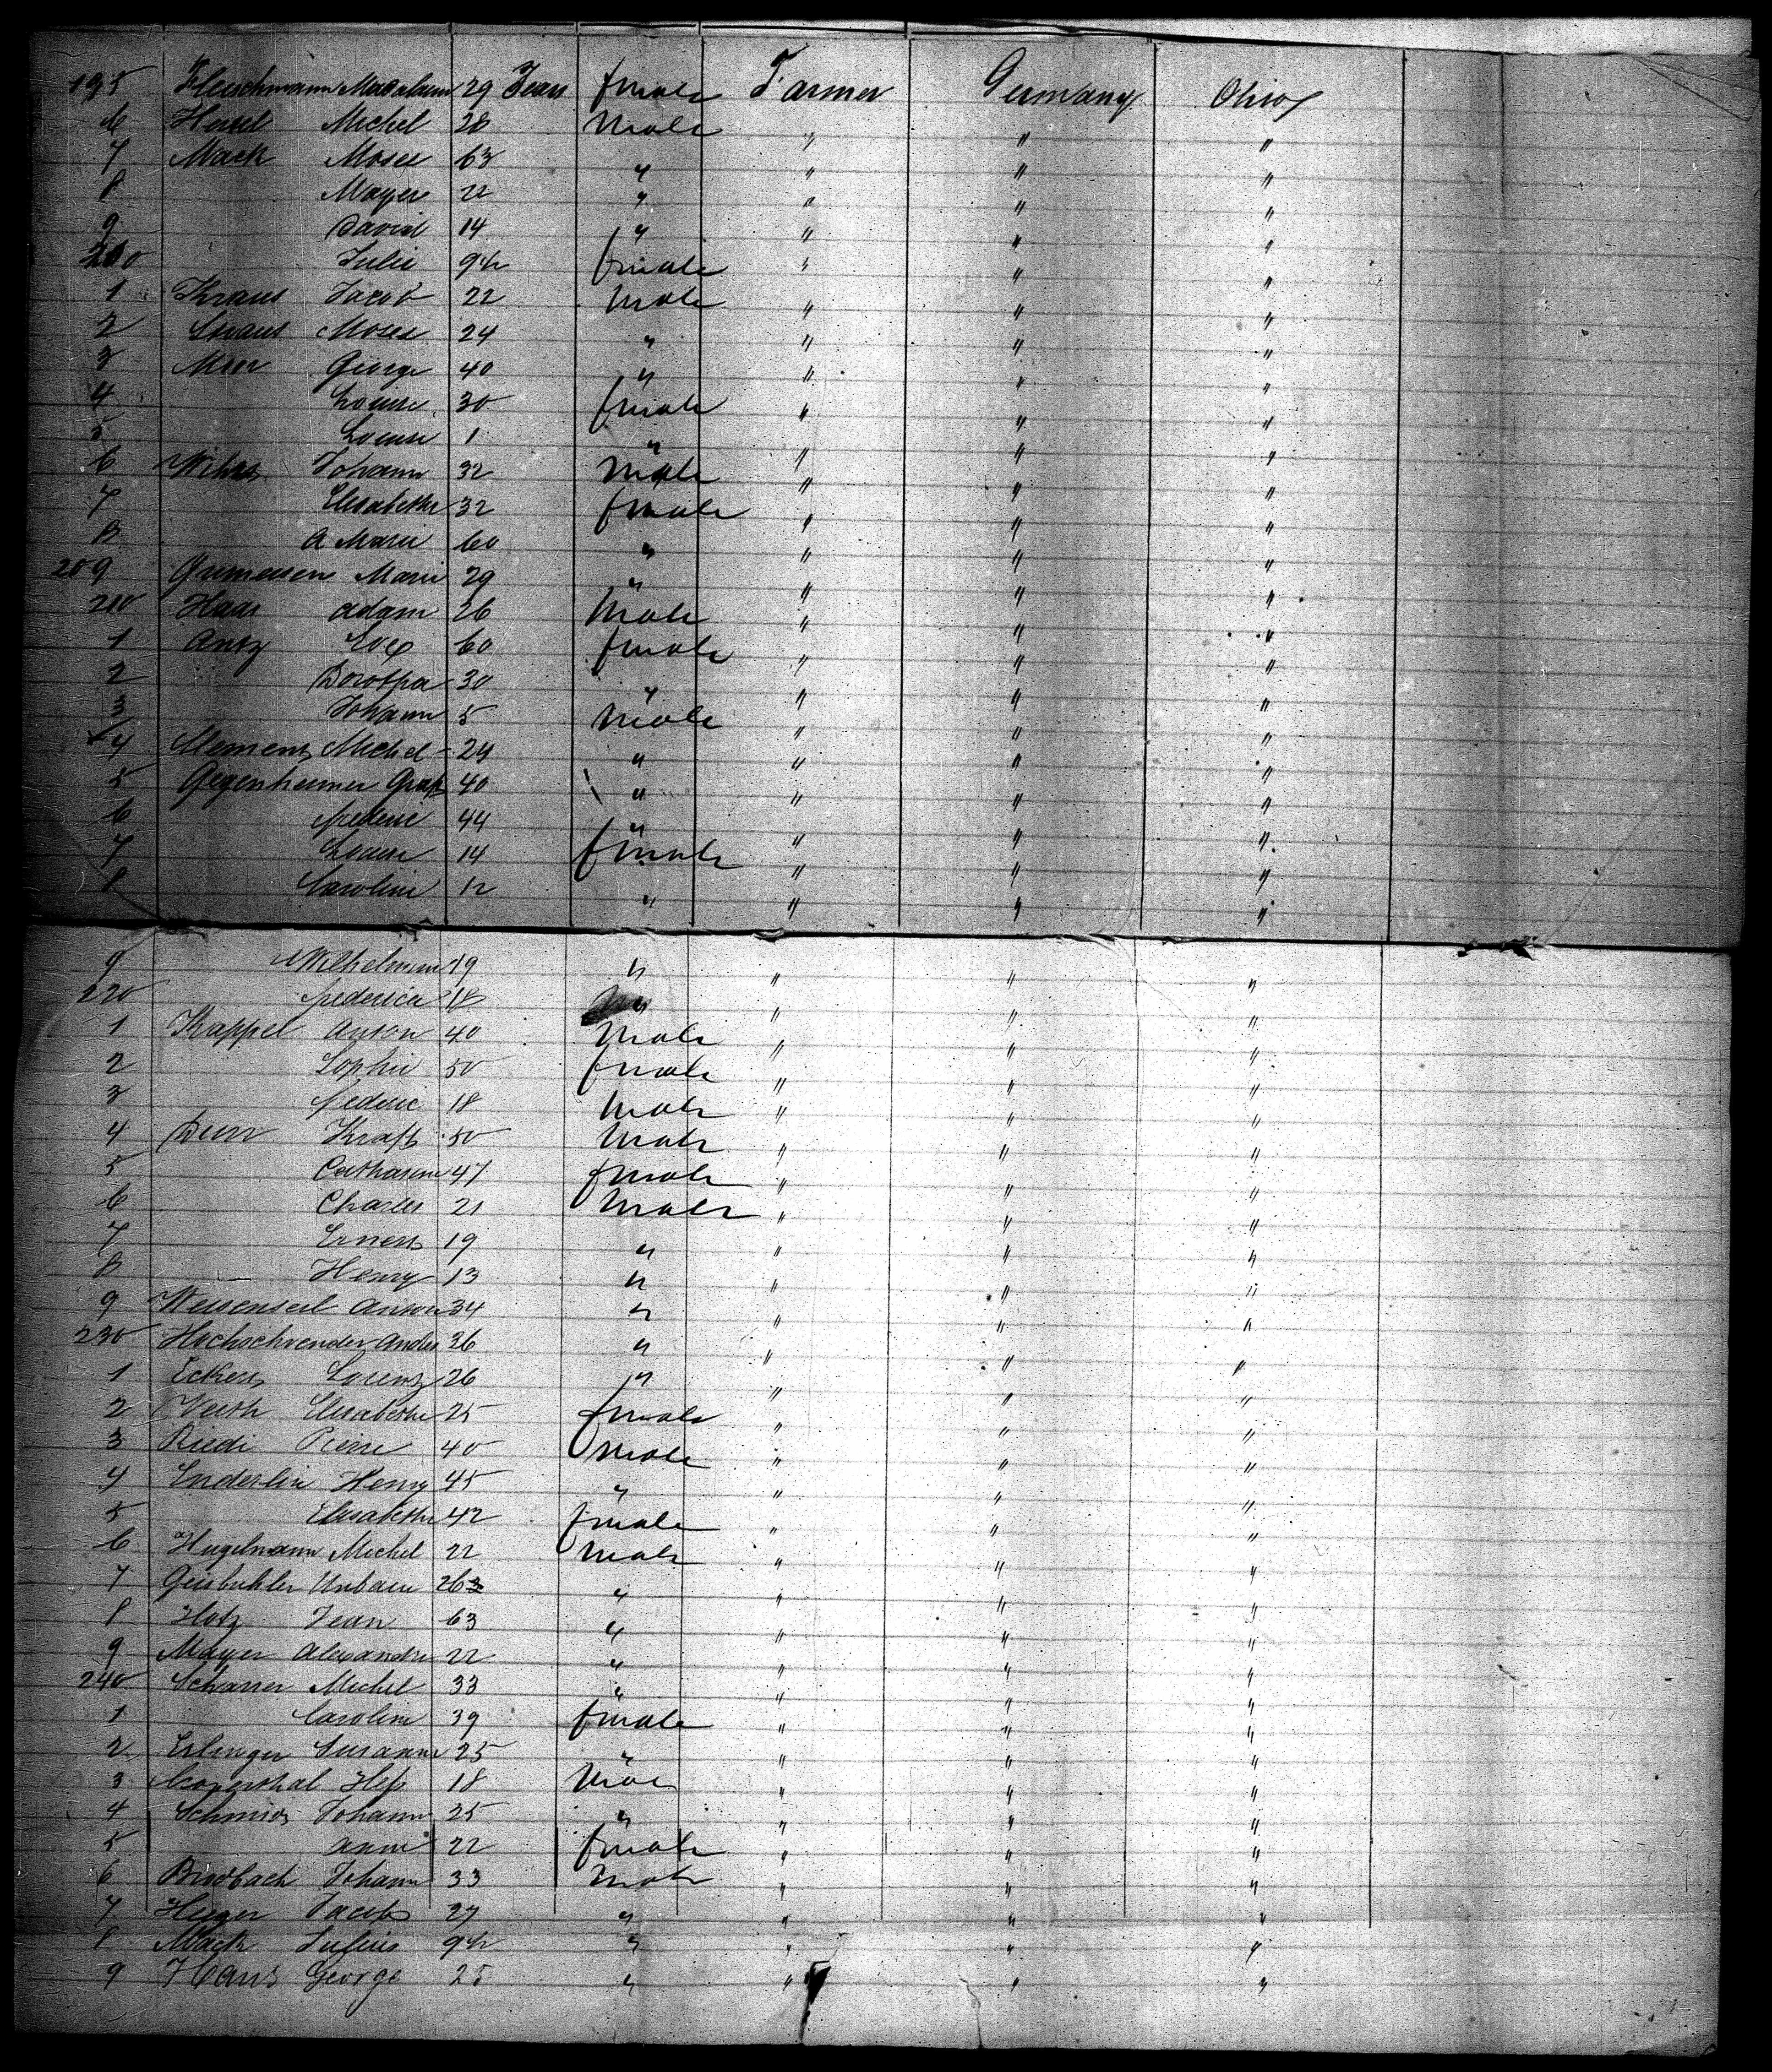 195 Fleischmann Madalena 29 Years female Farmer Germany Ohio
6 Michel 28 Male " " "
7 Mack Moses 63 " " " "
8 Mayer 22 " " " "
9 David 14 " " " "
200 Julie 9 female " " "
1 Kraus Jacob 22 Male " " "
2 Straus Moses 24 " " " "
3 George 40 " " " "
4 Louise 30 female " " "
5 Louise 1 " " " "
6 Johann 32 Male " " "
7 Elisabeth 32 female " " "
8 A Marie 60 " " " "
209 Marie 29 " " " "
210 Haas Adam 26 Male " " "
1 Antz Eva 60 female " " "
2 Dorothea 30 " " " "
3 Johann 5 Male " " "
4 Clemens Michel 24 " " " "
5 Gegenheimer 40 " " " "
6 frederic 44 " " " "
7 Louise 14 female " " "
8 Caroline 12 " " " "
9 Wilhelmine 19 " " " "
220 frederica 18 " " " "
1 Kappel Anton 40 Male " " "
2 Sophie 50 female " " "
3 frederic 18 Male " " "
4 Durr Kraft 50 Male " " "
5 Catharine 47 female " " "
6 Charles 21 Male " " "
7 Ernest 19 " " " "
8 Henry 13 " " " "
9 Weisenseel Anton 34 " " " "
230 Hochschwender Andre 36 " " " "
1 Eckert Lorenz 26 " " " "
2 Veith Elisabethe 25 female " " "
3 Riedi Pierre 40 Male " " "
4 Enderlin Henry 45 " " " "
5 Elisabethe 42 female " " "
6 Hugelmann Michel 22 Male " " "
7 Geisbuhler Urbain 26 " " " "
8 Hotz Jean 63 " " " "
9 Mayer Alexandre 22 " " " "
240 Scharrer Michel 33 " " " "
1 Caroline 39 female " " "
2 Erlinger Susanne 25 " " " "
3 18 Male " " "
4 Schmidt Johann 25 " " " "
5 Anne 22 female " " "
6 Brodbach Johann 33 Male " " "
7 Heeger Jacob 27 " " " "
8 Mack Julius 9 " " " "
9 Haus George 25 " " " "